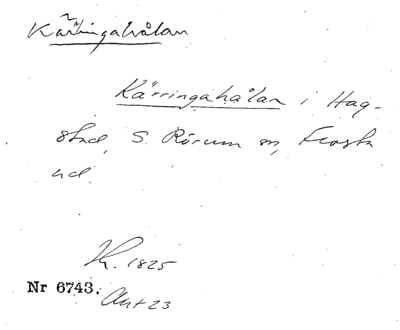 Kärringahålan
Kärringahålan i Hag-
stad, S. Rörum sn, Frosta
hd.
K. 1825
Nr 6743.
Akt 23